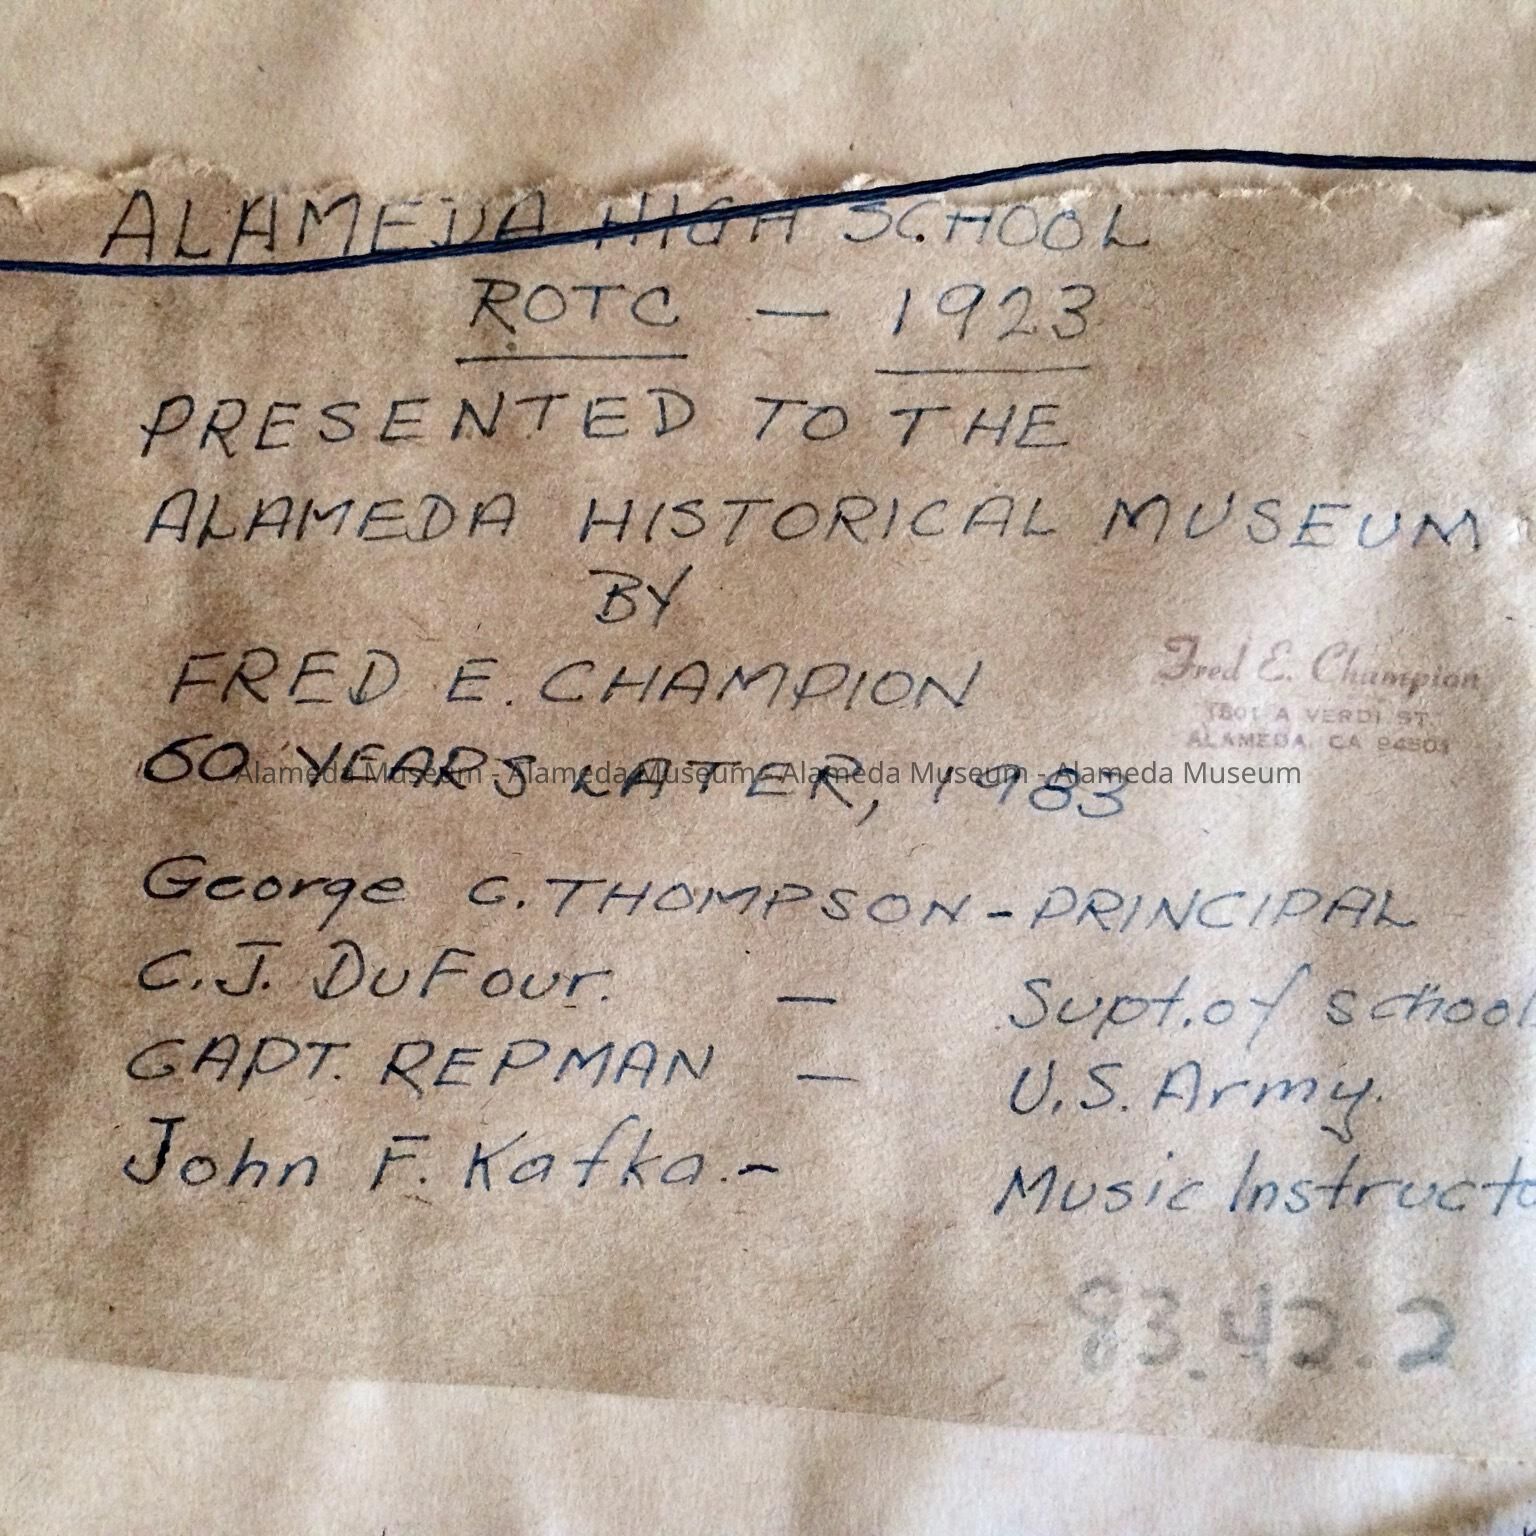 ALAMEDA HIGH SCHOOL
ROTC — 1923
PRESENTED TO THE
ALAMEDA HISTORICAL MUSEUM
BY
FRED E. CHAMPION
Fred E. Champion
1801 A VERDI ST.
ALAMEDA, CA 94501
60 YEARS LATER, 1983
Alameda Museum - Alameda Museum - Alameda Museum - Alameda Museum
George C. THOMPSON - PRINCIPAL
C.J. DuFour. — Supt. of school
CAPT. REPMAN — U.S. Army.
John F. Kafka. - Music Instructo
83.42.2